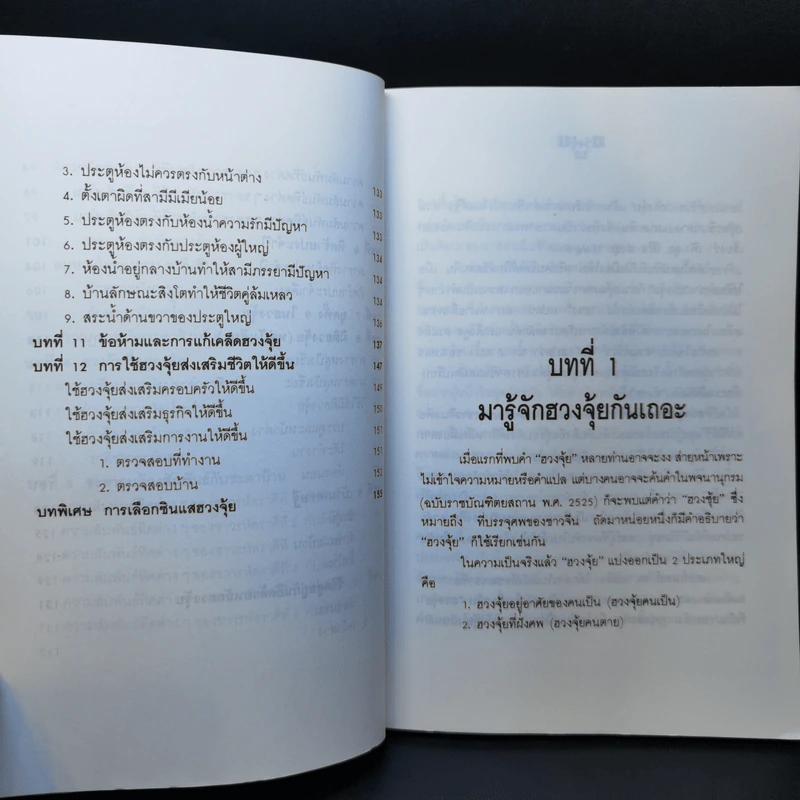 3. ประตูห้องไม่ควรตรงกับหน้าต่าง 133
4. ตั้งเตาผิดที่สามีมีเมียน้อย 133
5. ประตูห้องตรงกับห้องน้ำความรักมีปัญหา 133
6. ประตูห้องตรงกับประตูห้องผู้ใหญ่ 134
7. ห้องน้ำอยู่กลางบ้านทำให้สามีภรรยามีปัญหา 134
8. บ้านลักษณะสิงโตทำให้ชีวิตคู่ล้มเหลว 134
9. สระน้ำด้านขวาของประตูใหญ่ 136
บทที่ 11 ข้อห้ามและการแก้เคล็ดฮวงจุ้ย 137
บทที่ 12 การใช้ฮวงจุ้ยส่งเสริมชีวิตให้ดีขึ้น 147
ใช้ฮวงจุ้ยส่งเสริมครอบครัวให้ดีขึ้น 149
ใช้ฮวงจุ้ยส่งเสริมธุรกิจให้ดีขึ้น 151
ใช้ฮวงจุ้ยส่งเสริมการงานให้ดีขึ้น 151
1. ตรวจสอบที่ทำงาน 151
2. ตรวจสอบบ้าน 152
บทพิเศษ การเลือกซินแสฮวงจุ้ย 155
บทที่ 1
มารู้จักฮวงจุ้ยกันเถอะ
เมื่อแรกที่พบคำ “ฮวงจุ้ย” หลายท่านอาจจะงง ส่ายหน้าเพราะ
ไม่เข้าใจความหมายหรือคำแปล แต่บางคนอาจจะค้นคำในพจนานุกรม
(ฉบับราชบัณฑิตยสถาน พ.ศ. 2525) ก็จะพบแต่คำว่า “ฮวงซุ้ย” ซึ่ง
หมายถึง ที่บรรจุศพของชาวจีน ถัดมาหน่อยหนึ่งก็มีคำอธิบายว่า
“ฮวงจุ้ย” ก็ใช้เรียกเช่นกัน
ในความเป็นจริงแล้ว “ฮวงจุ้ย” แบ่งออกเป็น 2 ประเภทใหญ่
คือ
1. ฮวงจุ้ยอยู่อาศัยของคนเป็น (ฮวงจุ้ยคนเป็น)
2. ฮวงจุ้ยที่ฝังศพ (ฮวงจุ้ยคนตาย)